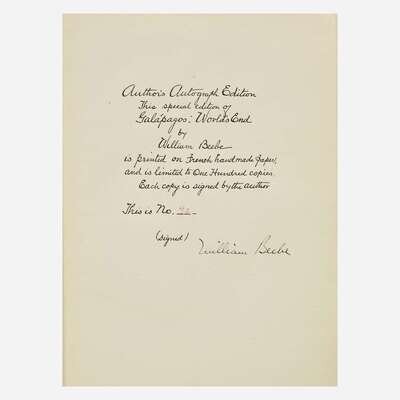 Author's Autograph Edition
This special edition of
Galápagos: World's End
by
William Beebe
is printed on French handmade paper,
and is limited to One Hundred copies.
Each copy is signed by the author
This is No.
(signed)
William Beebe